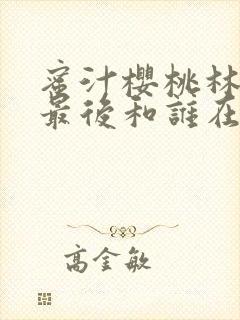 蜜汁櫻桃林
最後和誰在
高金敏